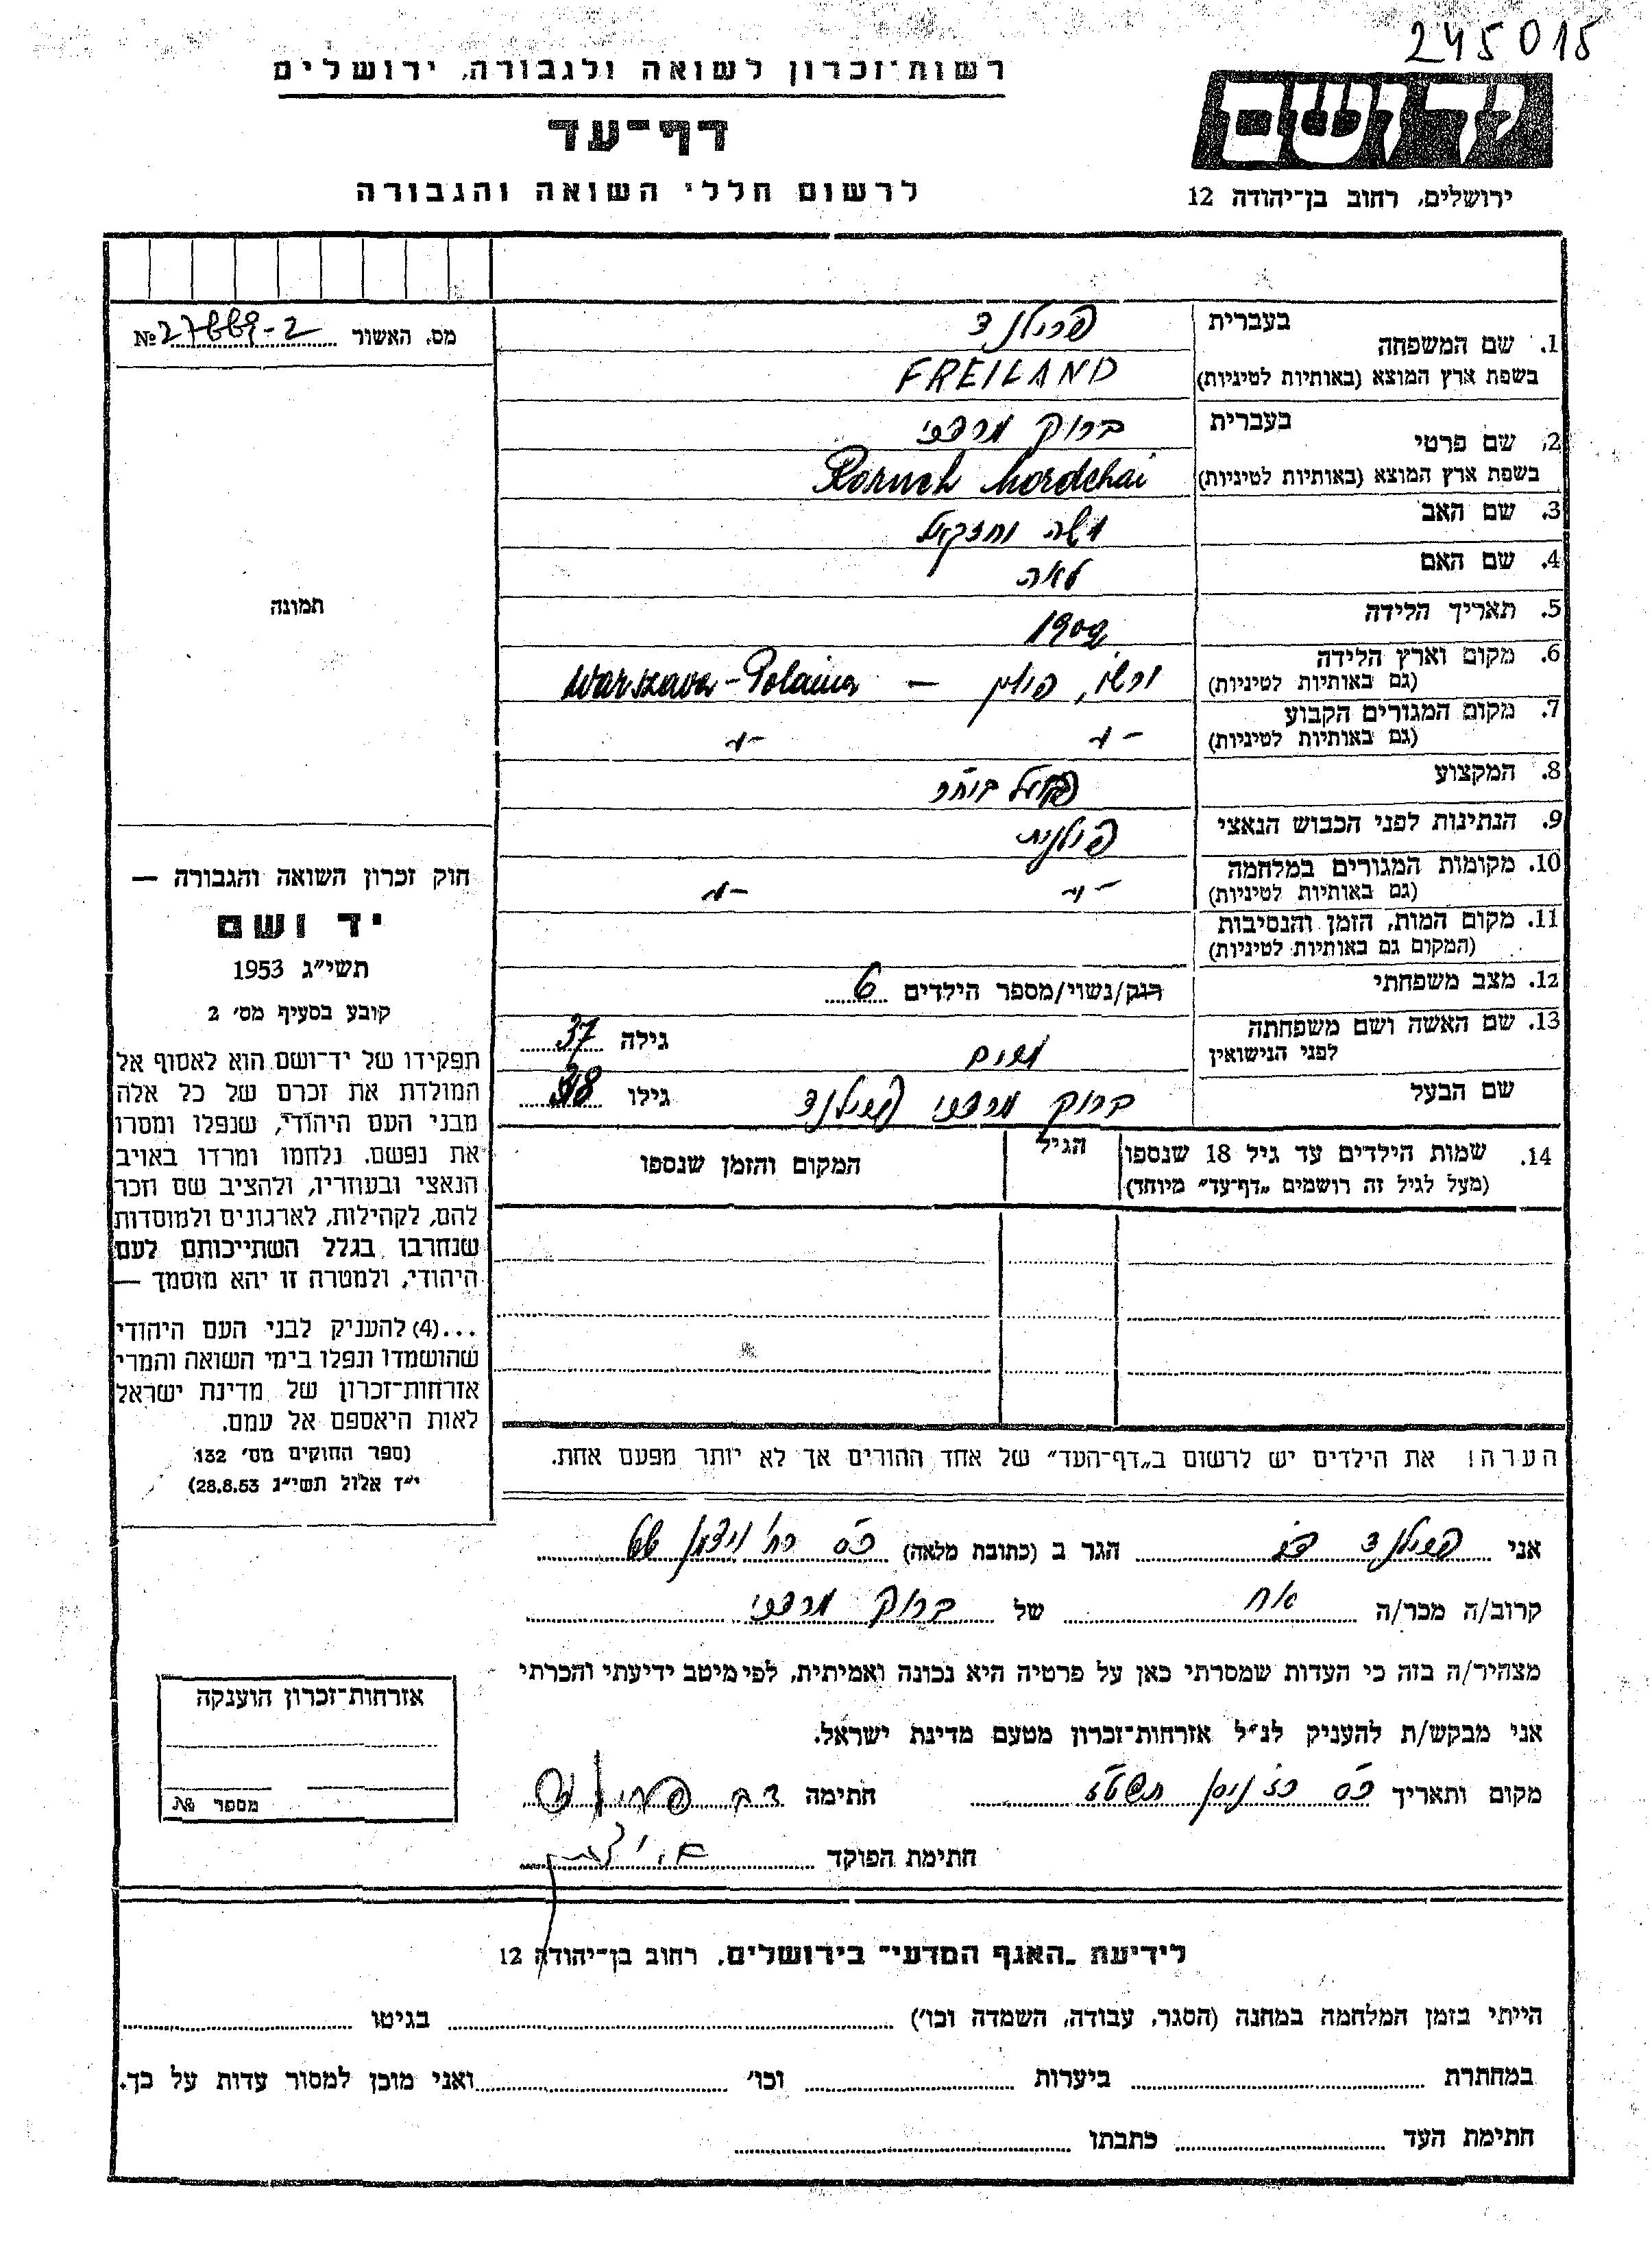 245015
רשות־זכרון לשואה ולגבורה, ירושלים
דף־עד
לרשום חללי השואה והגבורה
יד ושם
ירושלים, רחוב בן־יהודה 12
מס. האשור № 27669-2
תמונה
1. שם המשפחה
בעברית פרילנד
בשפת ארץ המוצא (באותיות לטיניות) FREILAND
2. שם פרטי
בעברית ברוך מרדכי
בשפת ארץ המוצא (באותיות לטיניות) Boruch Mordchai
3. שם האב משה יחזקאל
4. שם האם לאה
5. תאריך הלידה
6. מקום וארץ הלידה
(גם באותיות לטיניות) ורשה, פולין — Warszawa-
7. מקום המגורים הקבוע
(גם באותיות לטיניות)
8. המקצוע
9. הנתינות לפני הכבוש הנאצי פולנית
10. מקומות המגורים במלחמה
(גם באותיות לטיניות)
11. מקום המות, הזמן והנסיבות
(המקום גם באותיות לטיניות)
12. מצב משפחתי רוק/נשוי/מספר הילדים 6
13. שם האשה ושם משפחתה
לפני הנישואין גילה 37
שם הבעל ברוך מרדכי פרילנד גילו
14. שמות הילדים עד גיל 18 שנספו
(מעל לגיל זה רושמים „דף־עד" מיוחד)
הגיל
המקום והזמן שנספו
חוק זכרון השואה והגבורה —
יד ושם
תשי"ג 1953
קובע בסעיף מס׳ 2
תפקידו של יד־ושם הוא לאסוף אל
המולדת את זכרם של כל אלה
מבני העם היהודי, שנפלו ומסרו
את נפשם. נלחמו ומרדו באויב
הנאצי ובעוזריו, ולהציב שם וזכר
להם, לקהילות, לארגונים ולמוסדות
שנחרבו בגלל השתייכותם לעם
היהודי, ולמטרה זו יהא מוסמך —
...(4) להעניק לבני העם היהודי
שהושמדו ונפלו בימי השואה והמרי
אזרחות־זכרון של מדינת ישראל
לאות היאספם אל עמם.
(ספר החוקים מס׳ 132
י"ז אלול תשי"ג 28.8.53)
הערה! את הילדים יש לרשום ב„דף־העד" של אחד ההורים אך לא יותר מפעם אחת.
אני פרילנד דב הגר ב (כתובת מלאה)
קרוב/ה מכר/ה אח של ברוך מרדכי
מצהיר/ה בזה כי העדות שמסרתי כאן על פרטיה היא נכונה ואמיתית, לפי מיטב ידיעתי והכרתי
אני מבקש/ת להעניק לנ"ל אזרחות־זכרון מטעם מדינת ישראל.
מקום ותאריך חתימה דב פרילנד
חתימת הפוקד
אזרחות־זכרון הוענקה
מספר №
לידיעת „האגף המדעי" בירושלים, רחוב בן־יהודה 12
הייתי בזמן המלחמה במחנה (הסגר, עבודה, השמדה וכו׳) בגיטו
במחתרת ביערות וכו׳ ואני מוכן למסור עדות על כך.
חתימת העד כתבתו